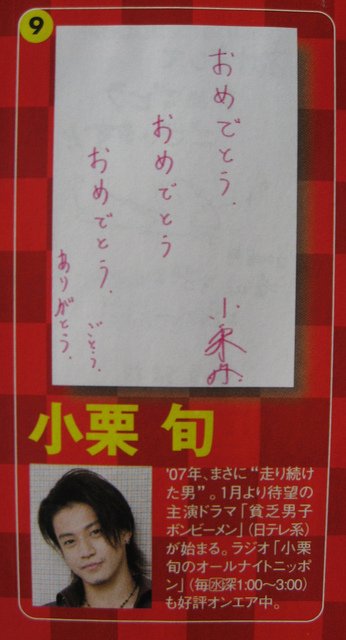 9
おめでとう.
おめでとう
おめでとう.
ごとう.
ありがとう.
小栗旬
小栗 旬
'07年、まさに“走り続け
た男”。1月より待望の
主演ドラマ「貧乏男子
ボンビーメン」(日テレ系)
が始まる。ラジオ「小栗
旬のオールナイトニッポ
ン」(毎㊌深1:00〜3:00)
も好評オンエア中。